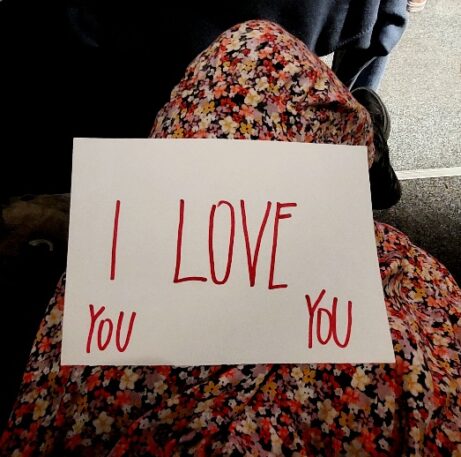 I LOVE
YOU YOU